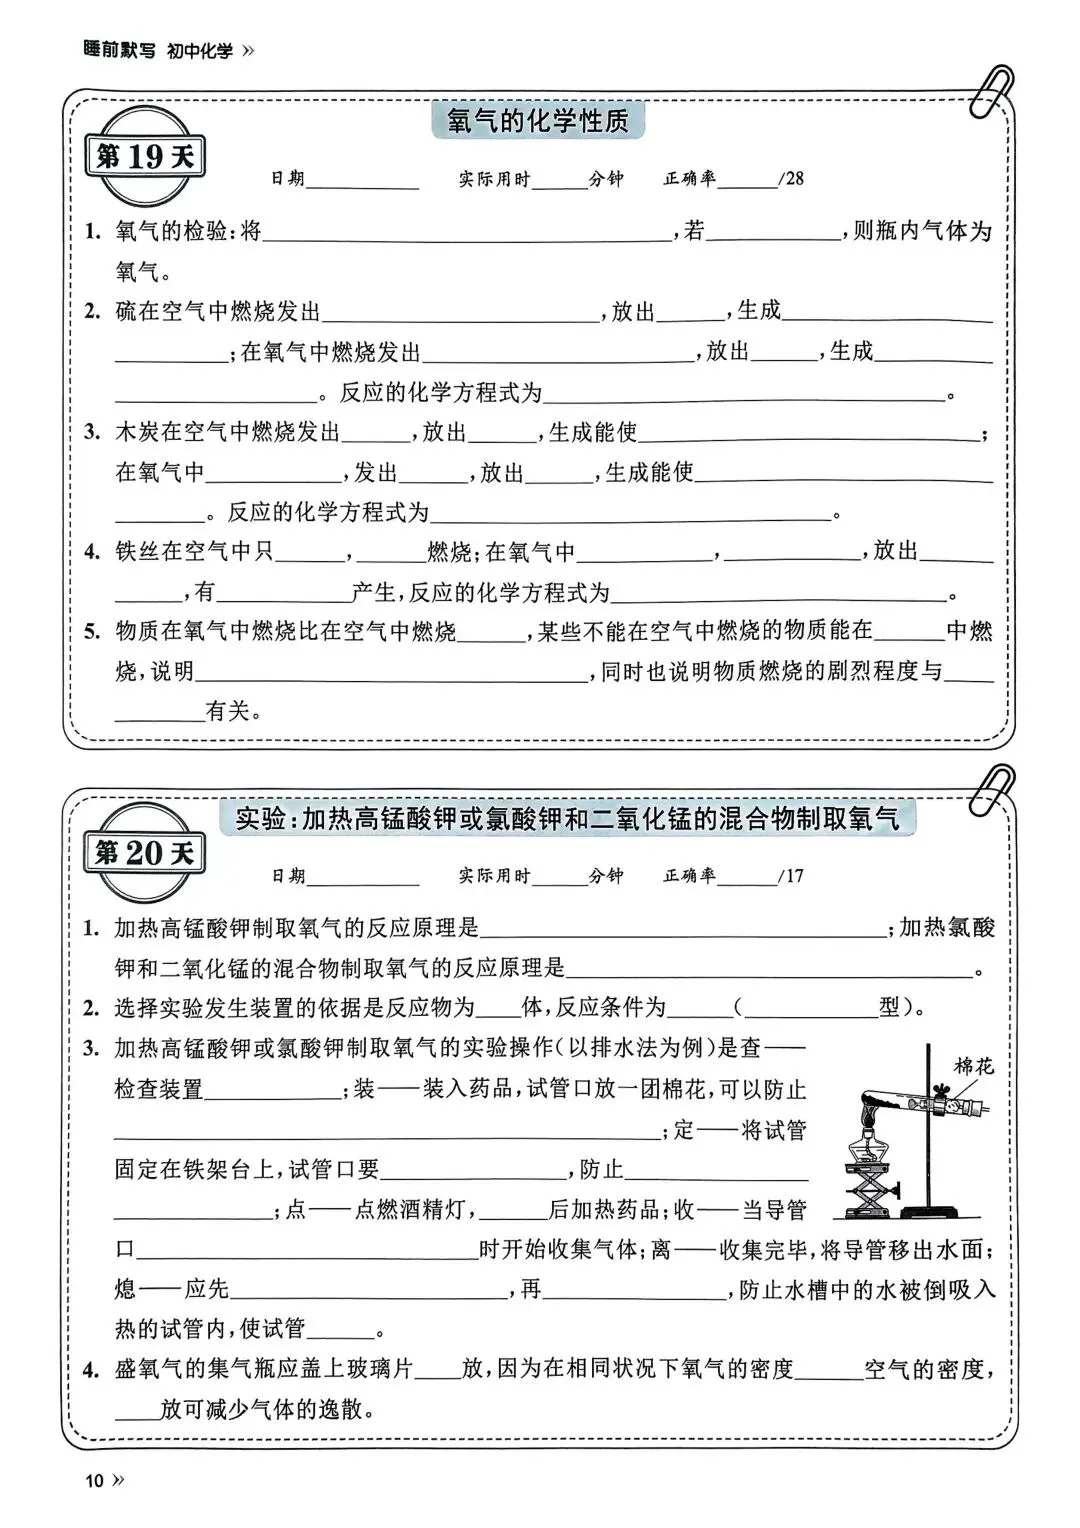 睡前默写 初中化学 »
氧气的化学性质
第19天
日期__________ 实际用时_____分钟 正确率_____/28
1. 氧气的检验:将____________________,若__________,则瓶内气体为
氧气。
2. 硫在空气中燃烧发出____________________,放出_____,生成____________________
__________;在氧气中燃烧发出____________________,放出_____,生成__________
____________________。反应的化学方程式为____________________。
3. 木炭在空气中燃烧发出_____,放出_____,生成能使____________________;
在氧气中__________,发出_____,放出_____,生成能使____________________
__________。反应的化学方程式为____________________。
4. 铁丝在空气中只_____,_____燃烧;在氧气中__________,__________,放出_____
_____,有__________产生,反应的化学方程式为____________________。
5. 物质在氧气中燃烧比在空气中燃烧_____,某些不能在空气中燃烧的物质能在_____中燃
烧,说明____________________,同时也说明物质燃烧的剧烈程度与_____
__________有关。
实验:加热高锰酸钾或氯酸钾和二氧化锰的混合物制取氧气
第20天
日期__________ 实际用时_____分钟 正确率_____/17
1. 加热高锰酸钾制取氧气的反应原理是____________________;加热氯酸
钾和二氧化锰的混合物制取氧气的反应原理是____________________。
2. 选择实验发生装置的依据是反应物为____体,反应条件为_____(__________型)。
3. 加热高锰酸钾或氯酸钾制取氧气的实验操作(以排水法为例)是查——
检查装置__________;装——装入药品,试管口放一团棉花,可以防止
____________________;定——将试管
固定在铁架台上,试管口要__________,防止__________
__________;点——点燃酒精灯,_____后加热药品;收——当导管
口____________________时开始收集气体;离——收集完毕,将导管移出水面;
熄——应先____________________,再__________,防止水槽中的水被倒吸入
热的试管内,使试管_____。
棉花
4. 盛氧气的集气瓶应盖上玻璃片____放,因为在相同状况下氧气的密度_____空气的密度,
____放可减少气体的逸散。
10 »